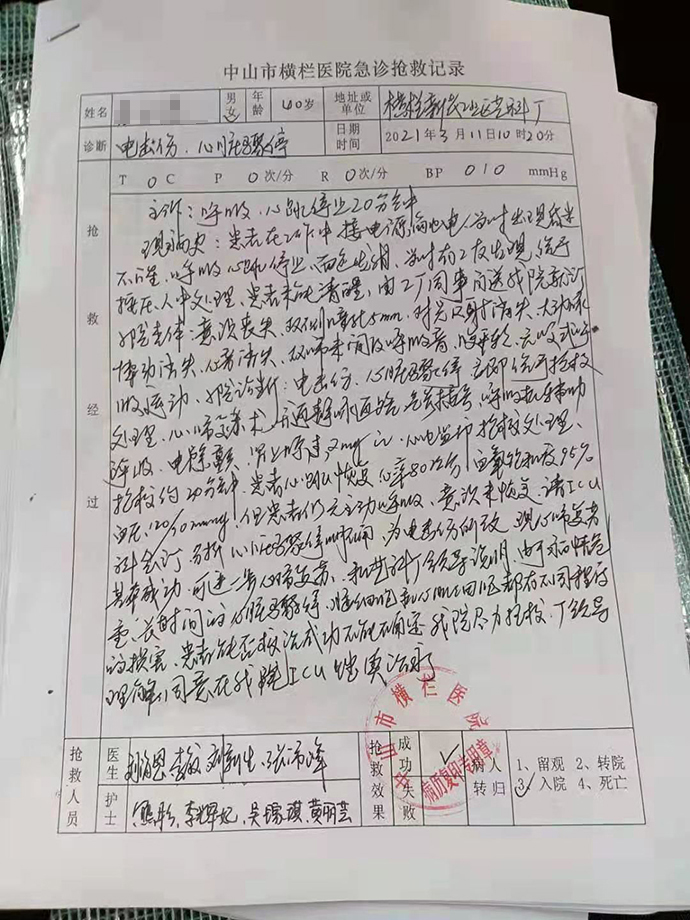 中山市横栏医院急诊抢救记录
姓名 男 女 年龄 40岁 地址或单位 横栏新茂工业区 厂
诊断 电击伤、心脏骤停 日期时间 2021年3月11日10时20分
T 0 C P 0次/分 R 0次/分 BP 0/0 mmHg
抢救经过
主诉：呼吸、心跳停止20分钟
现病史：患者在工作中接电源 电人 当时出现昏迷
不醒、呼吸心跳停止、面色发绀、当时有工友发现，给予
按压人中处理，患者未能清醒，由工厂同事 送我院就诊
入院查体：意识丧失、双侧瞳孔5mm，对光反射消失、大动脉
搏动消失、心音消失、双肺未闻及呼吸音、
吸运动、入院诊断：电击伤、心脏骤停 立即给予抢救
处理、心肺复苏术、开通静脉通路、气管插管、呼吸机辅助
呼吸、电除颤、肾上腺素 mg iv、心电监护抢救处理、
抢救约20分钟，患者心跳恢复 心率80次/分，血氧饱和度95%
血压120/ mmHg，但患者仍无主动呼吸、意识未恢复、请ICU
科会诊 分析心脏骤停 为电击伤所致 现心肺复苏
基本成功，可进一步心肺复苏、 厂领导说明 病情危
重、长时间的心脏骤停，脑细胞和心肌细胞都有不同程度
的损害、患者能否救治成功不能确定 我院尽力抢救、厂领导
理解、同意在我院ICU继续治疗
中山市横栏医院
病历复印专用章
抢救人员 医生 抢救效果 成功 √ 失败 病人转归 1、留观 2、转院
3、入院 4、死亡
护士 熊彤、李 、吴瑞琪、黄丽芸